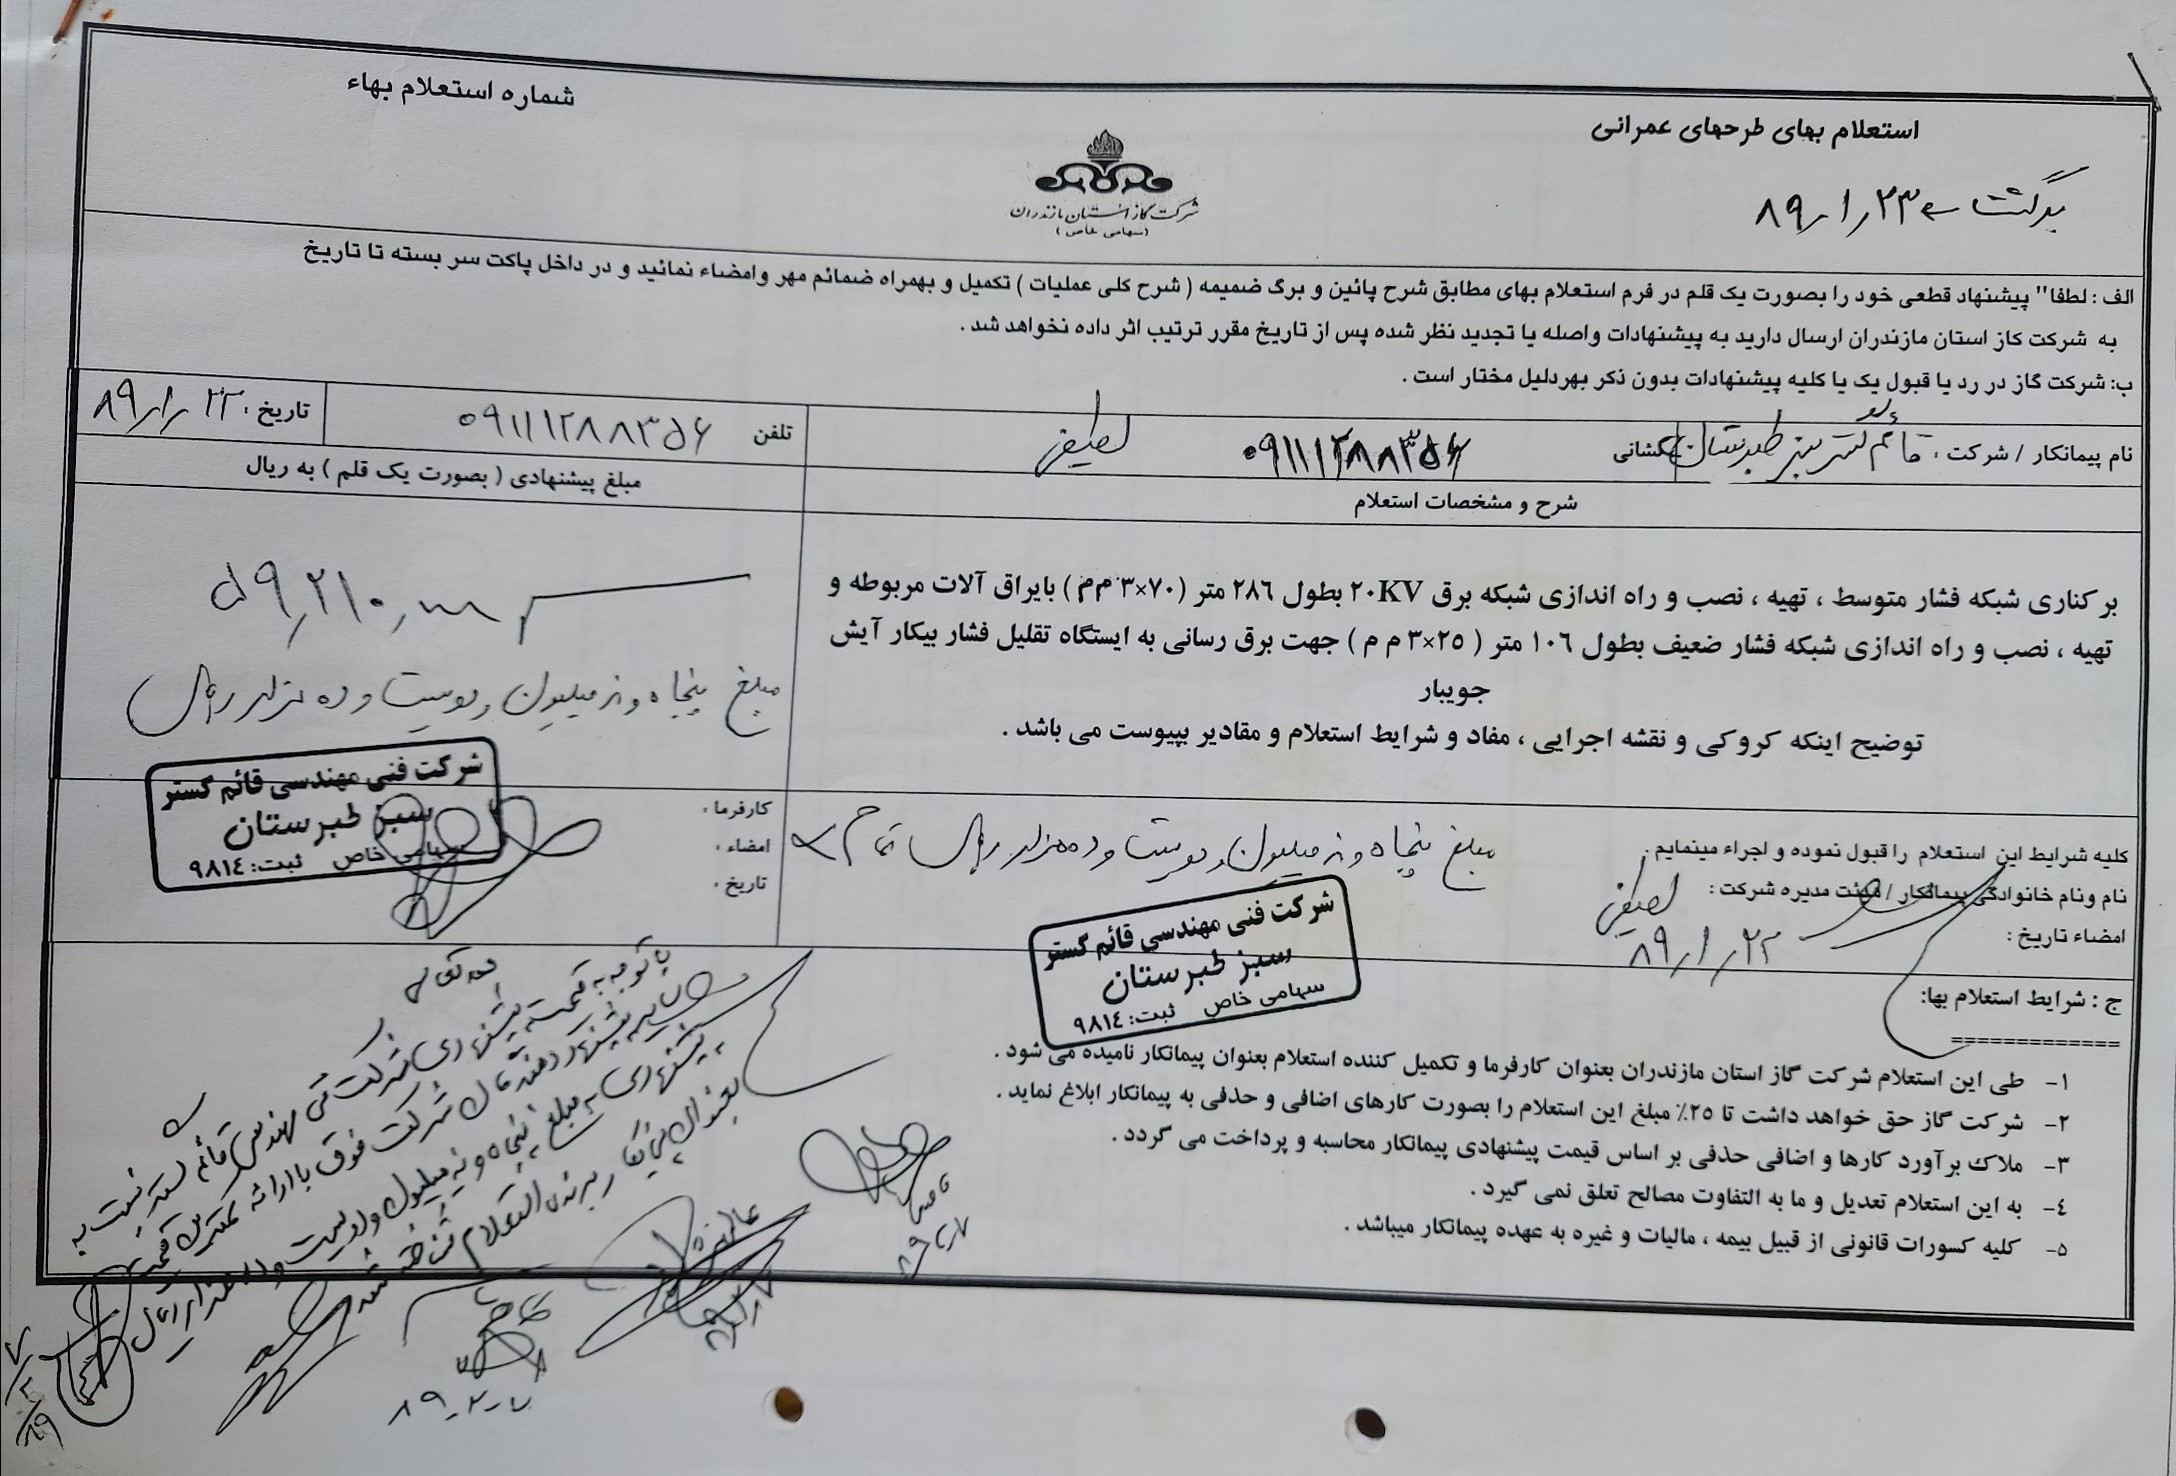 شماره استعلام بهاء
استعلام بهای طرحهای عمرانی
برگشت ۸۹/۱/۲۳
شرکت گاز استان مازندران
( سهامی خاص )
الف : لطفا" پیشنهاد قطعی خود را بصورت یک قلم در فرم استعلام بهای مطابق شرح پائین و برگ ضمیمه ( شرح کلی عملیات ) تکمیل و بهمراه ضمائم مهر وامضاء نمائید و در داخل پاکت سر بسته تا تاریخ
به شرکت گاز استان مازندران ارسال دارید به پیشنهادات واصله یا تجدید نظر شده پس از تاریخ مقرر ترتیب اثر داده نخواهد شد .
ب: شرکت گاز در رد یا قبول یک یا کلیه پیشنهادات بدون ذکر بهردلیل مختار است .
نام پیمانکار / شرکت : قائم گستر سبز طبرستان نشانی ۰۹۱۱۱۲۸۸۳۵۶ لطیفی
تلفن ۰۹۱۱۱۲۸۸۳۵۶
تاریخ : ۸۹/۱/۲۲
شرح و مشخصات استعلام
مبلغ پیشنهادی ( بصورت یک قلم ) به ریال
بر کناری شبکه فشار متوسط ، تهیه ، نصب و راه اندازی شبکه برق ۲۰KV بطول ۲۸٦ متر (۷۰×۳ م م ) بایراق آلات مربوطه و
تهیه ، نصب و راه اندازی شبکه فشار ضعیف بطول ۱۰٦ متر ( ۲۵×۳ م م ) جهت برق رسانی به ایستگاه تقلیل فشار بیکار آیش
جویبار
توضیح اینکه کروکی و نقشه اجرایی ، مفاد و شرایط استعلام و مقادیر بپیوست می باشد .
۵۹,۲۱۰,۰۰۰
مبلغ پنجاه و نه میلیون و دویست و ده هزار ریال
شرکت فنی مهندسی قائم گستر
سبز طبرستان
سهامی خاص ثبت: ۹۸۱٤
کارفرما :
امضاء :
تاریخ :
مبلغ پنجاه و نه میلیون و دویست و ده هزار ریال تمام
کلیه شرایط این استعلام را قبول نموده و اجراء مینمایم .
نام ونام خانوادگی پیمانکار / هیئت مدیره شرکت : لطیفی
امضاء تاریخ : ۸۹/۱/۲۲
شرکت فنی مهندسی قائم گستر
سبز طبرستان
سهامی خاص ثبت: ۹۸۱٤
ج : شرایط استعلام بها:
=============
۱- طی این استعلام شرکت گاز استان مازندران بعنوان کارفرما و تکمیل کننده استعلام بعنوان پیمانکار نامیده می شود .
۲- شرکت گاز حق خواهد داشت تا ۲۵٪ مبلغ این استعلام را بصورت کارهای اضافی و حذفی به پیمانکار ابلاغ نماید .
۳- ملاک برآورد کارها و اضافی حذفی بر اساس قیمت پیشنهادی پیمانکار محاسبه و پرداخت می گردد .
٤- به این استعلام تعدیل و ما به التفاوت مصالح تعلق نمی گیرد .
۵- کلیه کسورات قانونی از قبیل بیمه ، مالیات و غیره به عهده پیمانکار میباشد .
بسمه تعالی
با توجه به قیمت پیشنهادی شرکت فنی مهندسی قائم گستر نسبت به
سایر پیشنهاد دهندگان شرکت فوق با ارائه کمترین قیمت
پیشنهادی به مبلغ پنجاه و نه میلیون و دویست و ده هزار ریال
بعنوان پیمانکار برنده استعلام شناخته شد
۸۹/۲/۷
۸۹/۲/۷
۸۹-۲-۷
۸۹/۲/۷